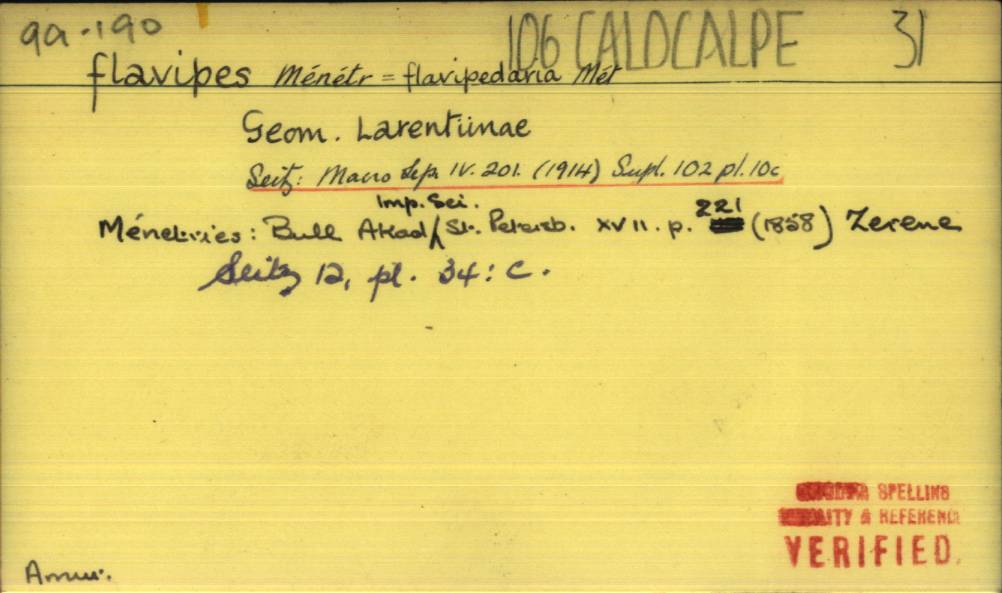 99-190 106 CALOCALPE 31
flavipes Ménétr = flavipedaria Mét
Geom. Larentiinae
Seitz: Macro Lep. IV. 201. (1914) Supl. 102 pl. 10c
Imp. Sci.
Ménetries: Bull Akad/ St. Petersb. XVII. p. 221 (1858) Zerene
Seitz 12, pl. 34: C.
SPELLING
& REFERENCE
VERIFIED.
Amur.